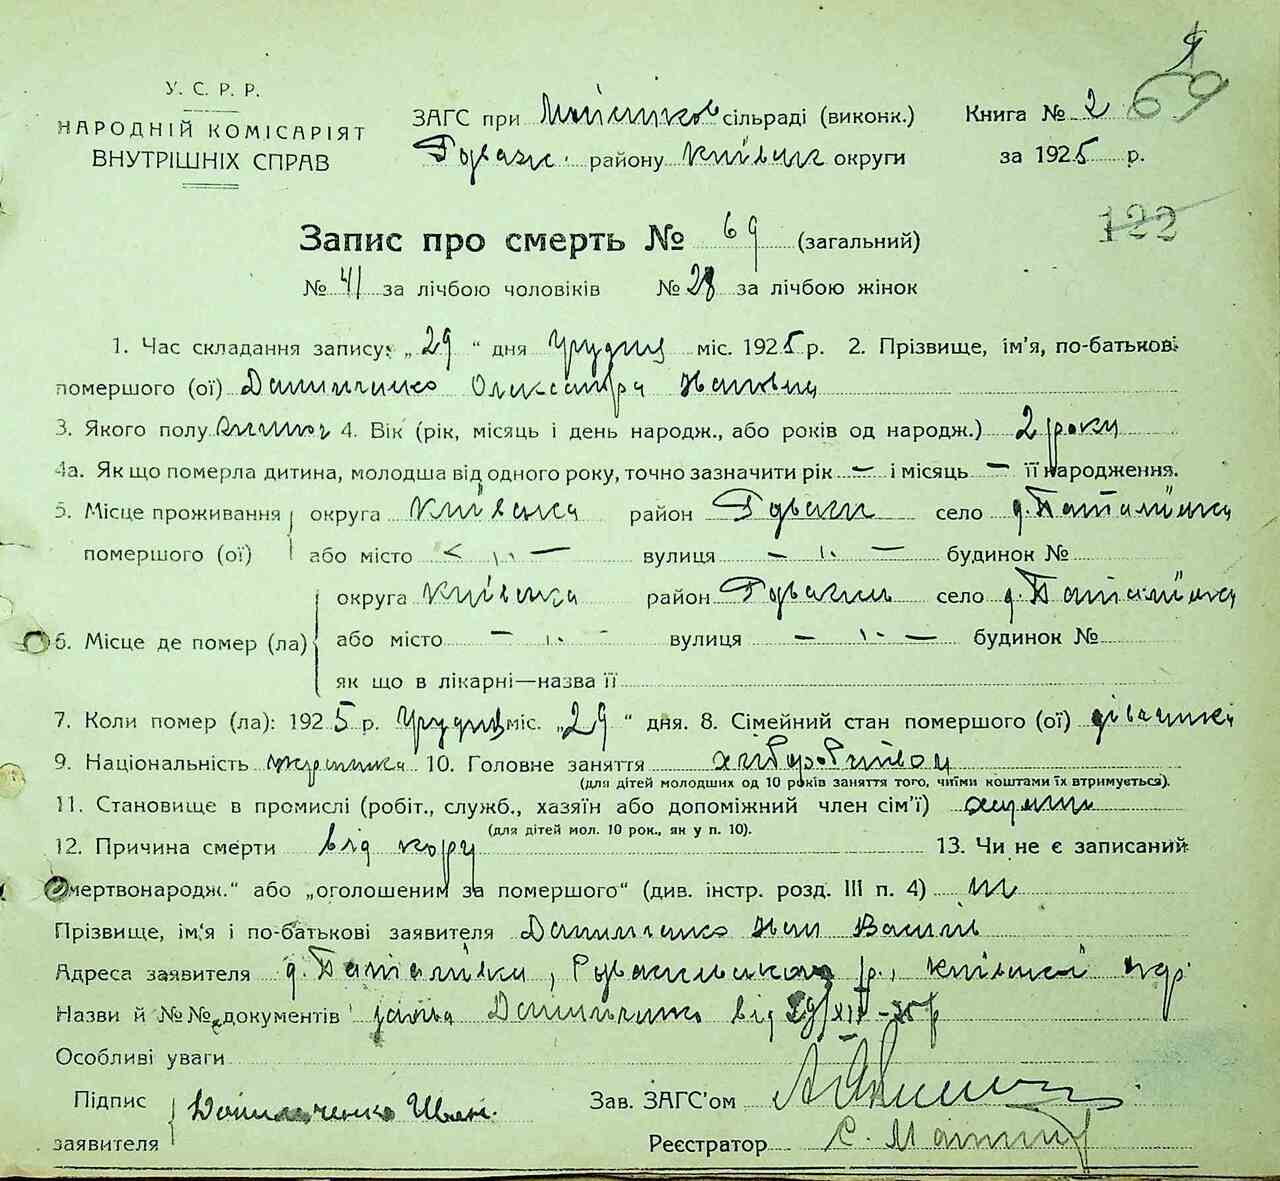 У. С. Р. Р.
НАРОДНІЙ КОМІСАРІЯТ
ВНУТРІШНІХ СПРАВ
ЗАГС при сільраді (виконк.)
району Київськ округи
Книга № 2
за 1925 р.
69
122
Запис про смерть № 69 (загальний)
№ 41 за лічбою чоловіків № 28 за лічбою жінок
1. Час складання запису: „29“ дня Грудня міс. 1925 р. 2. Прізвище, ім'я, по-батькові
помершого (ої) Данильченко Олександра Іванівна
3. Якого полу жіноч 4. Вік (рік, місяць і день народж., або років од народж.) 2 роки
4а. Як що померла дитина, молодша від одного року, точно зазначити рік — і місяць — її народження.
5. Місце проживання округа Київська район село
помершого (ої) або місто вулиця будинок №
округа Київська район село
6. Місце де помер (ла) або місто вулиця будинок №
як що в лікарні—назва її
7. Коли помер (ла): 1925 р. Грудня міс. „29“ дня. 8. Сімейний стан помершого (ої) дівчинка
9. Національність українка 10. Головне заняття хліборобство
(для дітей молодших од 10 років заняття того, чиїми коштами їх втримується).
11. Становище в промислі (робіт., служб., хазяїн або допоміжний член сім'ї)
(для дітей мол. 10 рок., як у п. 10).
12. Причина смерти від кору 13. Чи не є записаний
„мертвонародж.“ або „оголошеним за помершого“ (див. інстр. розд. III п. 4) ні
Прізвище, ім'я і по-батькові заявителя Данильченко Іван Василів
Адреса заявителя р., Київської окр.
Назви й №№ документів заява Данильченко від 29/XII-25 р
Особливі уваги
Підпис Данильченко Иван.
заявителя
Зав. ЗАГС'ом
Реєстратор С.